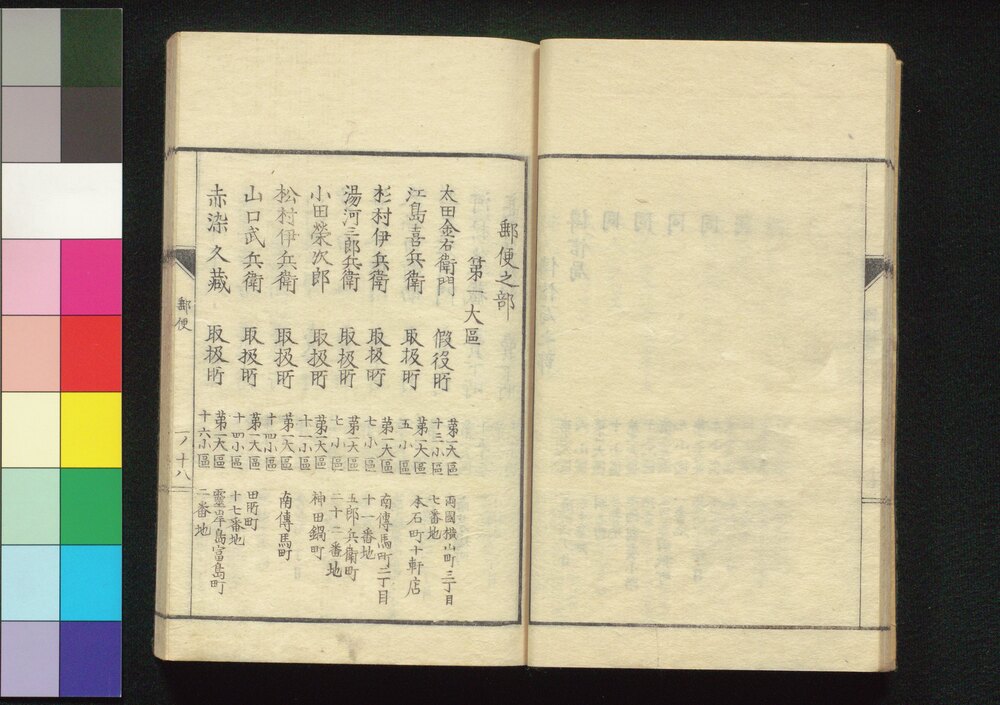 郵便之部
第一大區
太田金右衛門 假役所 第一大區十三小區 両國横山町三丁目七番地
江島喜兵衛 取扱所 第一大區五小區 本石町十軒店
杉村伊兵衛 取扱所 第一大區七小區 南傳馬町二丁目十一番地
湯河三郎兵衛 取扱所 第一大區七小區 五郎兵衛町二十二番地
小田榮次郎 取扱所 第一大區十一小區 神田鍋町
松村伊兵衛 取扱所 第一大區十四小區 南傳馬町
山口武兵衛 取扱所 第一大區十四小區 田所町十七番地
赤染久藏 取扱所 第一大區十六小區 靈岸島富島町二番地
郵便
一ノ十八